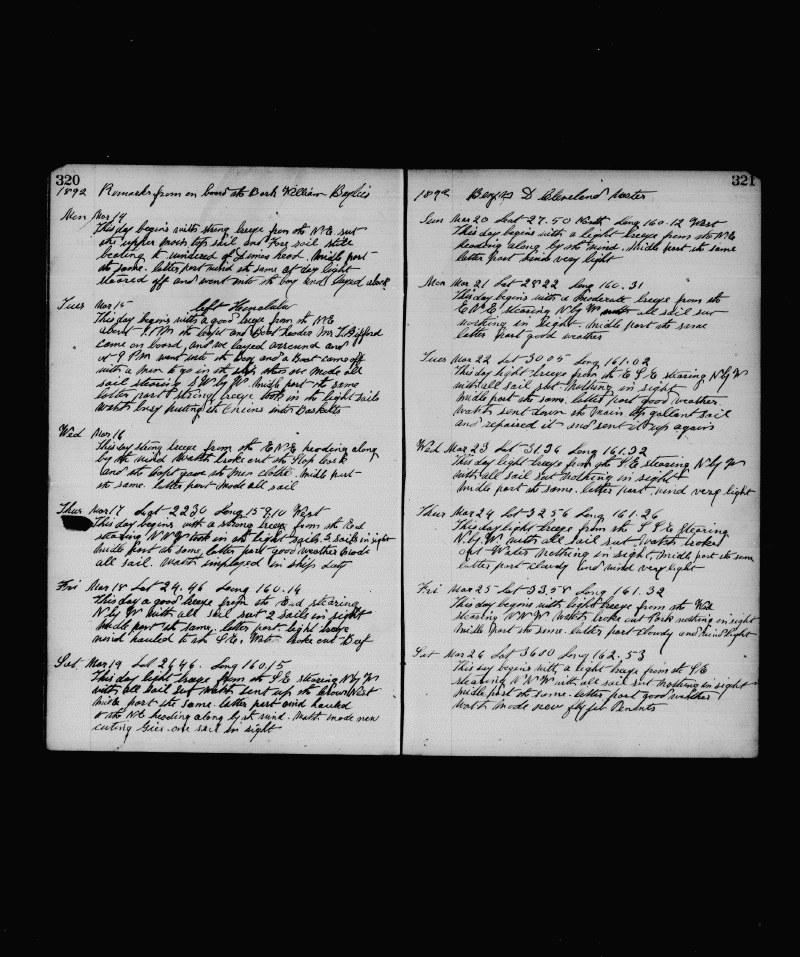 320
1892 Remarks from on board the Bark William Baylies
Mon Mar 14
This day begins with strong breeze from the N.E. sut
the upper main top sail and Fore sail still
beating to windered of head. Midle part
the same. latter part wind the same at day light
steared off and went into the boy and layed about
Tues Mar 15 left Honolulu
This day begins with a good breeze from the N.E
about 1 P.M. the and Boat header Mr. Gifford
came on board, and we layed arround and
at 9 P.M. went into the boy and a Boat came off
with a man to go in the ship then we made all
sail stearing S W by W. Midle part the same
latter part strong breeze took in the light sails
Watch busy puting the in Baskets
Wed Mar 16
This day strong breeze from the E N E heading along
by the wind Watch broke out the Slop Cask
and the Capt gave the men clothe. Midle part
the same. latter part made all sail
Thur Mar 17 Lat 22 30 Long 158,10 West
This day begins with a strong breeze from the East
stearing N W W took in the light sails 3 sails in sight
Midle part the same, latter part good weather made
all sail. Watch imployed in ships duty
Fri Mar 18 Lat 24.46 Long 160.14
This day a good breeze from the East stearing
N by W with all sail sut 2 sails in sight
Midle part the same. latter part light breeze
wind hauled to the S.E. Watch broke out Beef
Sat Mar 19 Lat 26 46. Long 160,15
This day light breeze from the S.E stearing N by W
with all sail sut Watch sent up the Crows Nest
Midle part the same. latter part wind hauled
to the N.E heading along by the wind. Watch made new
cuting Gies. one sail in sight
321
1892 Benj D Cleveland Master
Sun Mar 20 Lat 27.50 North Long 160.12 West
This day begins with a light breeze from the N.E
heading along by the wind. Midle part the same
latter part wind very light
Mon Mar 21 Lat 28 22 Long 160.31
This day begins with a moderate breeze from the
E N E stearing N by W with all sail sut
nothing in sight. Midle part the same
latter part good weather
Tues Mar 22 Lat 30 05 Long 161.02
This day light breeze from the E S E stearing N by W
with all sail sut Nothing in sight
Midle part the same. latter part good weather.
Watch sent down the Main top gallant sail
and repaired it and sent it up again
Wed Mar 23 Lat 31,36 Long 161.32
This day light breeze from the S.E. stearing N by W
with all sail sut Nothing in sight
Midle part the same. latter part. wind very light
Thur Mar 24 Lat 32 56 Long 161.26
This day light breeze from the S S E stearing
N. by. W. with all sail sut. Watch broke
out Water Nothing in sight, Midle part the same
latter part cloudy and wind very light
Fri Mar 25 Lat 33.58 Long 161.32
This day begins with light breeze from the West
stearing N N W Watch broke out Pork nothing in sight
Midle part the same. latter part cloudy and wind light
Sat Mar 26 Lat 36 00 Long 162.53
This day begins with a light breeze from the S.E
stearing N N W with all sail sut Nothing in sight
Midle part the same. latter part good weather
Watch made new Penants